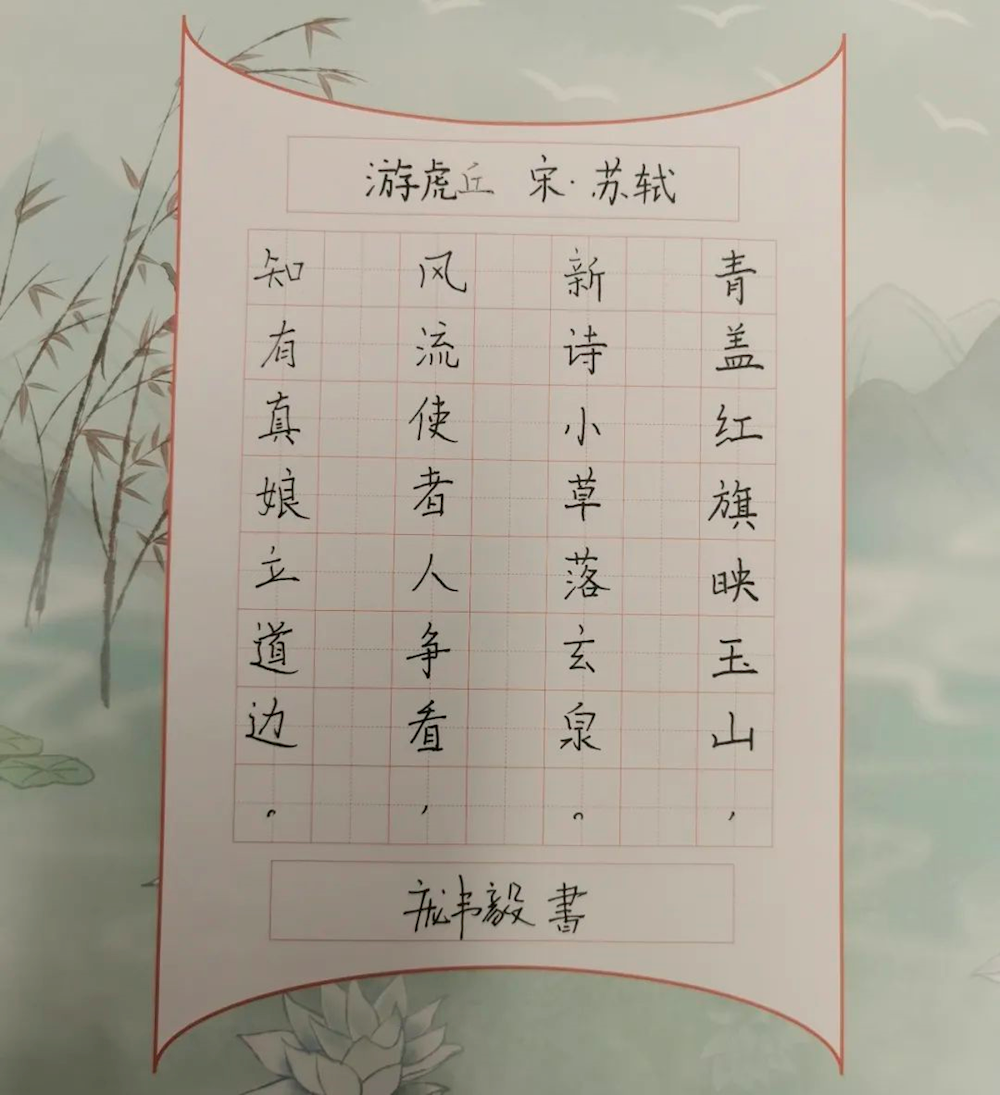 游虎丘 宋·苏轼
青盖红旗映玉山，
新诗小草落玄泉。
风流使者人争看，
知有真娘立道边。
庞韦毅 書